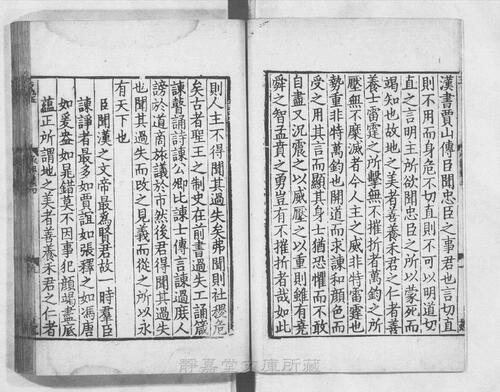 漢書賈山傳臣聞忠臣之事君也言切直
則不用而身危不切直則不可以明道切
直之言明主所欲聞忠臣之所以蒙死而
竭知也故地之美者善養禾君之仁者善
養士雷霆之所擊無不摧折者萬鈞之所
壓無不糜滅者今人主之威非特雷霆也
勢重非特萬鈞也開道而求諫和顏色而
受之用其言而顯其身士猶恐懼而不敢
自盡又況震之以威壓之以重則雖有堯
舜之智孟賁之勇豈有不摧折者哉如此
則人主不得聞其過失矣弗聞則社稷危
矣古者聖王之制史在前書過失工誦箴
諫瞽誦詩諫公卿比諫士傳言諫過庶人
謗於道商旅議於市然後君得聞其過失
也聞其過失而改之見義而從之所以永
有天下也
臣聞漢之文帝最爲賢君故一時羣臣
諫諍者最多如賈誼如張釋之如馮唐
如爰盎如晁錯莫不因事犯顏竭盡底
蘊正所謂地之美者善養禾君之仁者
靜嘉堂文庫所藏